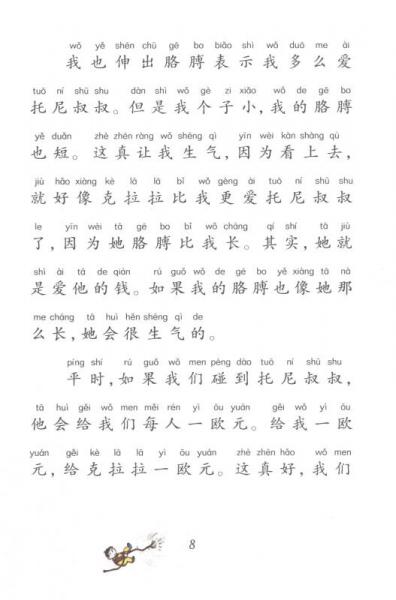 wǒ yě shēn chū gē bo biǎo shì wǒ duō me ài
我也伸出胳膊表示我多么爱
tuō ní shū shu dàn shì wǒ gè zi xiǎo wǒ de gē bo
托尼叔叔。但是我个子小，我的胳膊
yě duǎn zhè zhēn ràng wǒ shēng qì yīn wèi kàn shàng qù
也短。这真让我生气，因为看上去，
jiù hǎo xiàng kè lā lā bǐ wǒ gèng ài tuō ní shū shu
就好像克拉拉比我更爱托尼叔叔
le yīn wèi tā gē bo bǐ wǒ cháng qí shí tā jiù
了，因为她胳膊比我长。其实，她就
shì ài tā de qián rú guǒ wǒ de gē bo yě xiàng tā nà
是爱他的钱。如果我的胳膊也像她那
me cháng tā huì hěn shēng qì de
么长，她会很生气的。
píng shí rú guǒ wǒ men pèng dào tuō ní shū shu
平时，如果我们碰到托尼叔叔，
tā huì gěi wǒ men měi rén yì ōu yuán gěi wǒ yì ōu
他会给我们每人一欧元。给我一欧
yuán gěi kè lā lā yì ōu yuán zhè zhēn hǎo wǒ men
元，给克拉拉一欧元。这真好，我们
8